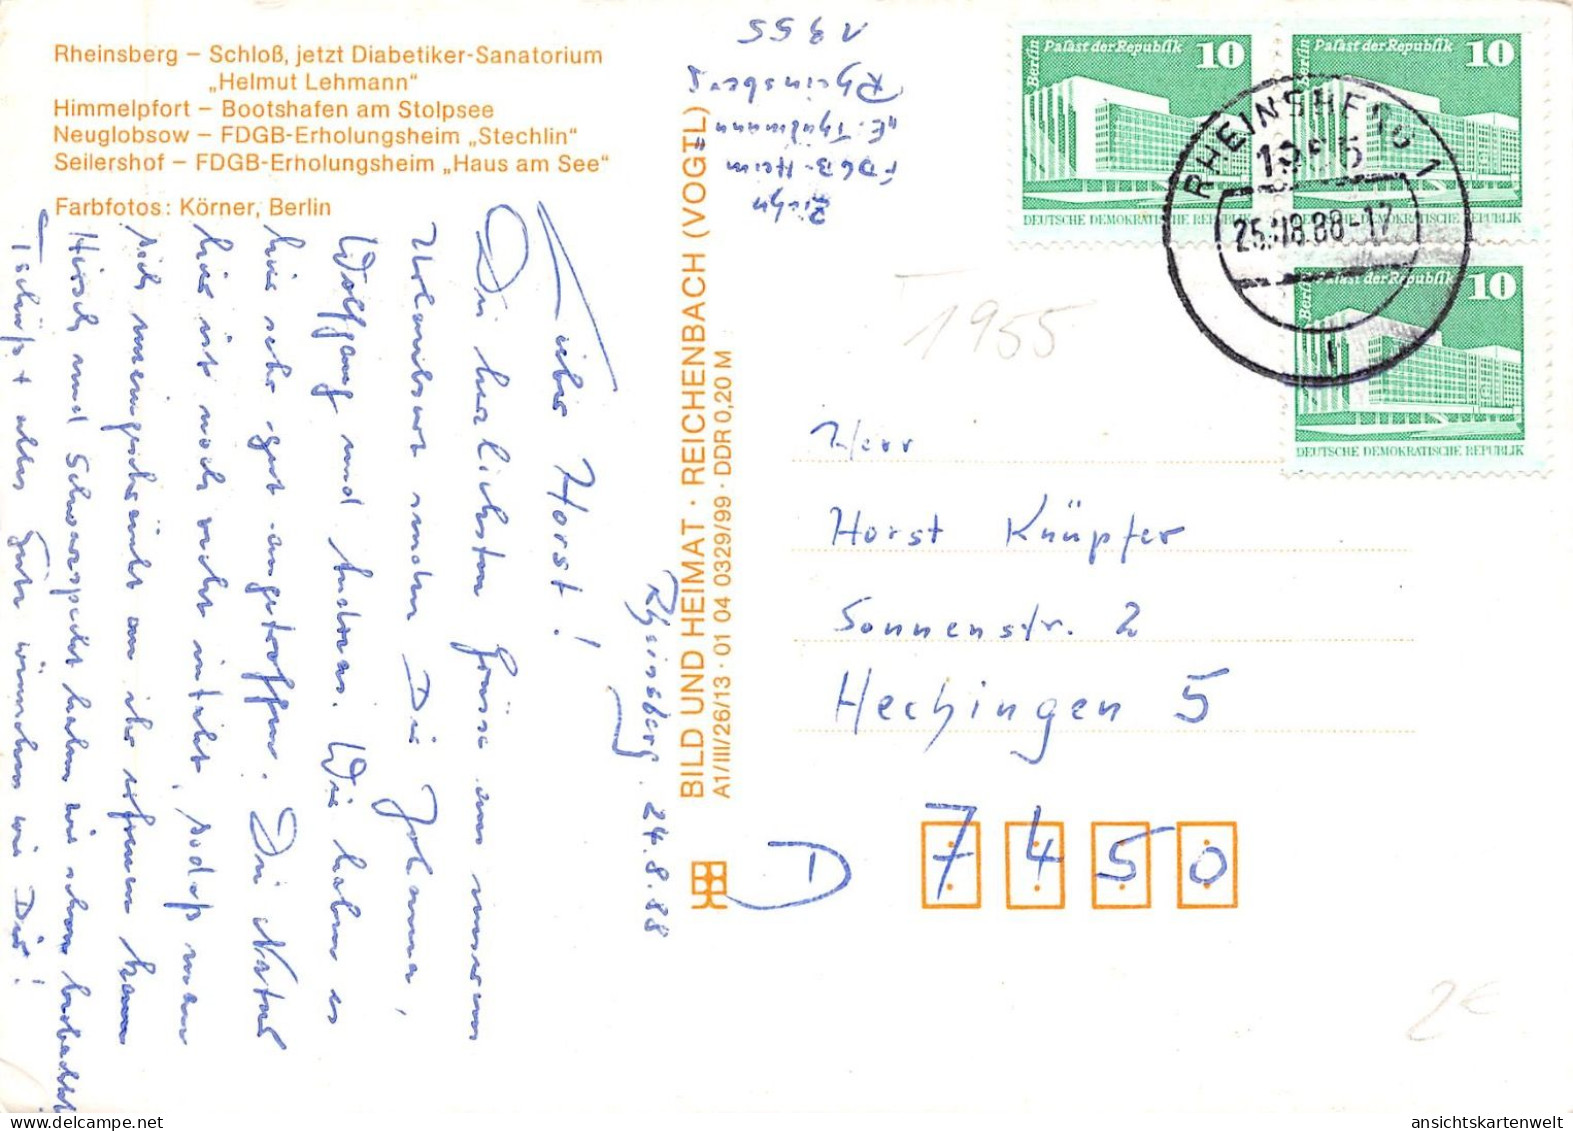 Rheinsberg – Schloß, jetzt Diabetiker-Sanatorium
„Helmut Lehmann“
Himmelpfort – Bootshafen am Stolpsee
Neuglobsow – FDGB-Erholungsheim „Stechlin“
Seilershof – FDGB-Erholungsheim „Haus am See“
Farbfotos: Körner, Berlin
FDGB-Heim
„E. Thälmann“
Rheinsberg
1955
Rheinsberg, 24.8.88
Lieber Horst!
Die herzlichsten Grüße aus unserem
Urlaubsort senden Dir Johanna,
Wolfgang und Andreas. Wir haben es
hier sehr gut angetroffen. Die Natur
hier ist noch recht intakt, sodaß man
sich uneingeschränkt an ihr erfreuen kann
Hirsch und Schwarzspecht haben wir schon beobachtet
Tschüß + alles Gute wünschen wir Dir!
BILD UND HEIMAT · REICHENBACH (VOGTL)
A1/III/26/13 · 01 04 0329/99 · DDR 0,20 M
Berlin Palast der Republik 10
DEUTSCHE DEMOKRATISCHE REPUBLIK
Berlin Palast der Republik 10
DEUTSCHE DEMOKRATISCHE REPUBLIK
Berlin Palast der Republik 10
DEUTSCHE DEMOKRATISCHE REPUBLIK
RHEINSBERG 1
1955
25.-8.88-17
1955
Herr
Horst Knüpfer
Sonnenstr. 2
Hechingen 5
D 7450
2€
ansichtskartenwelt@delcampe.net